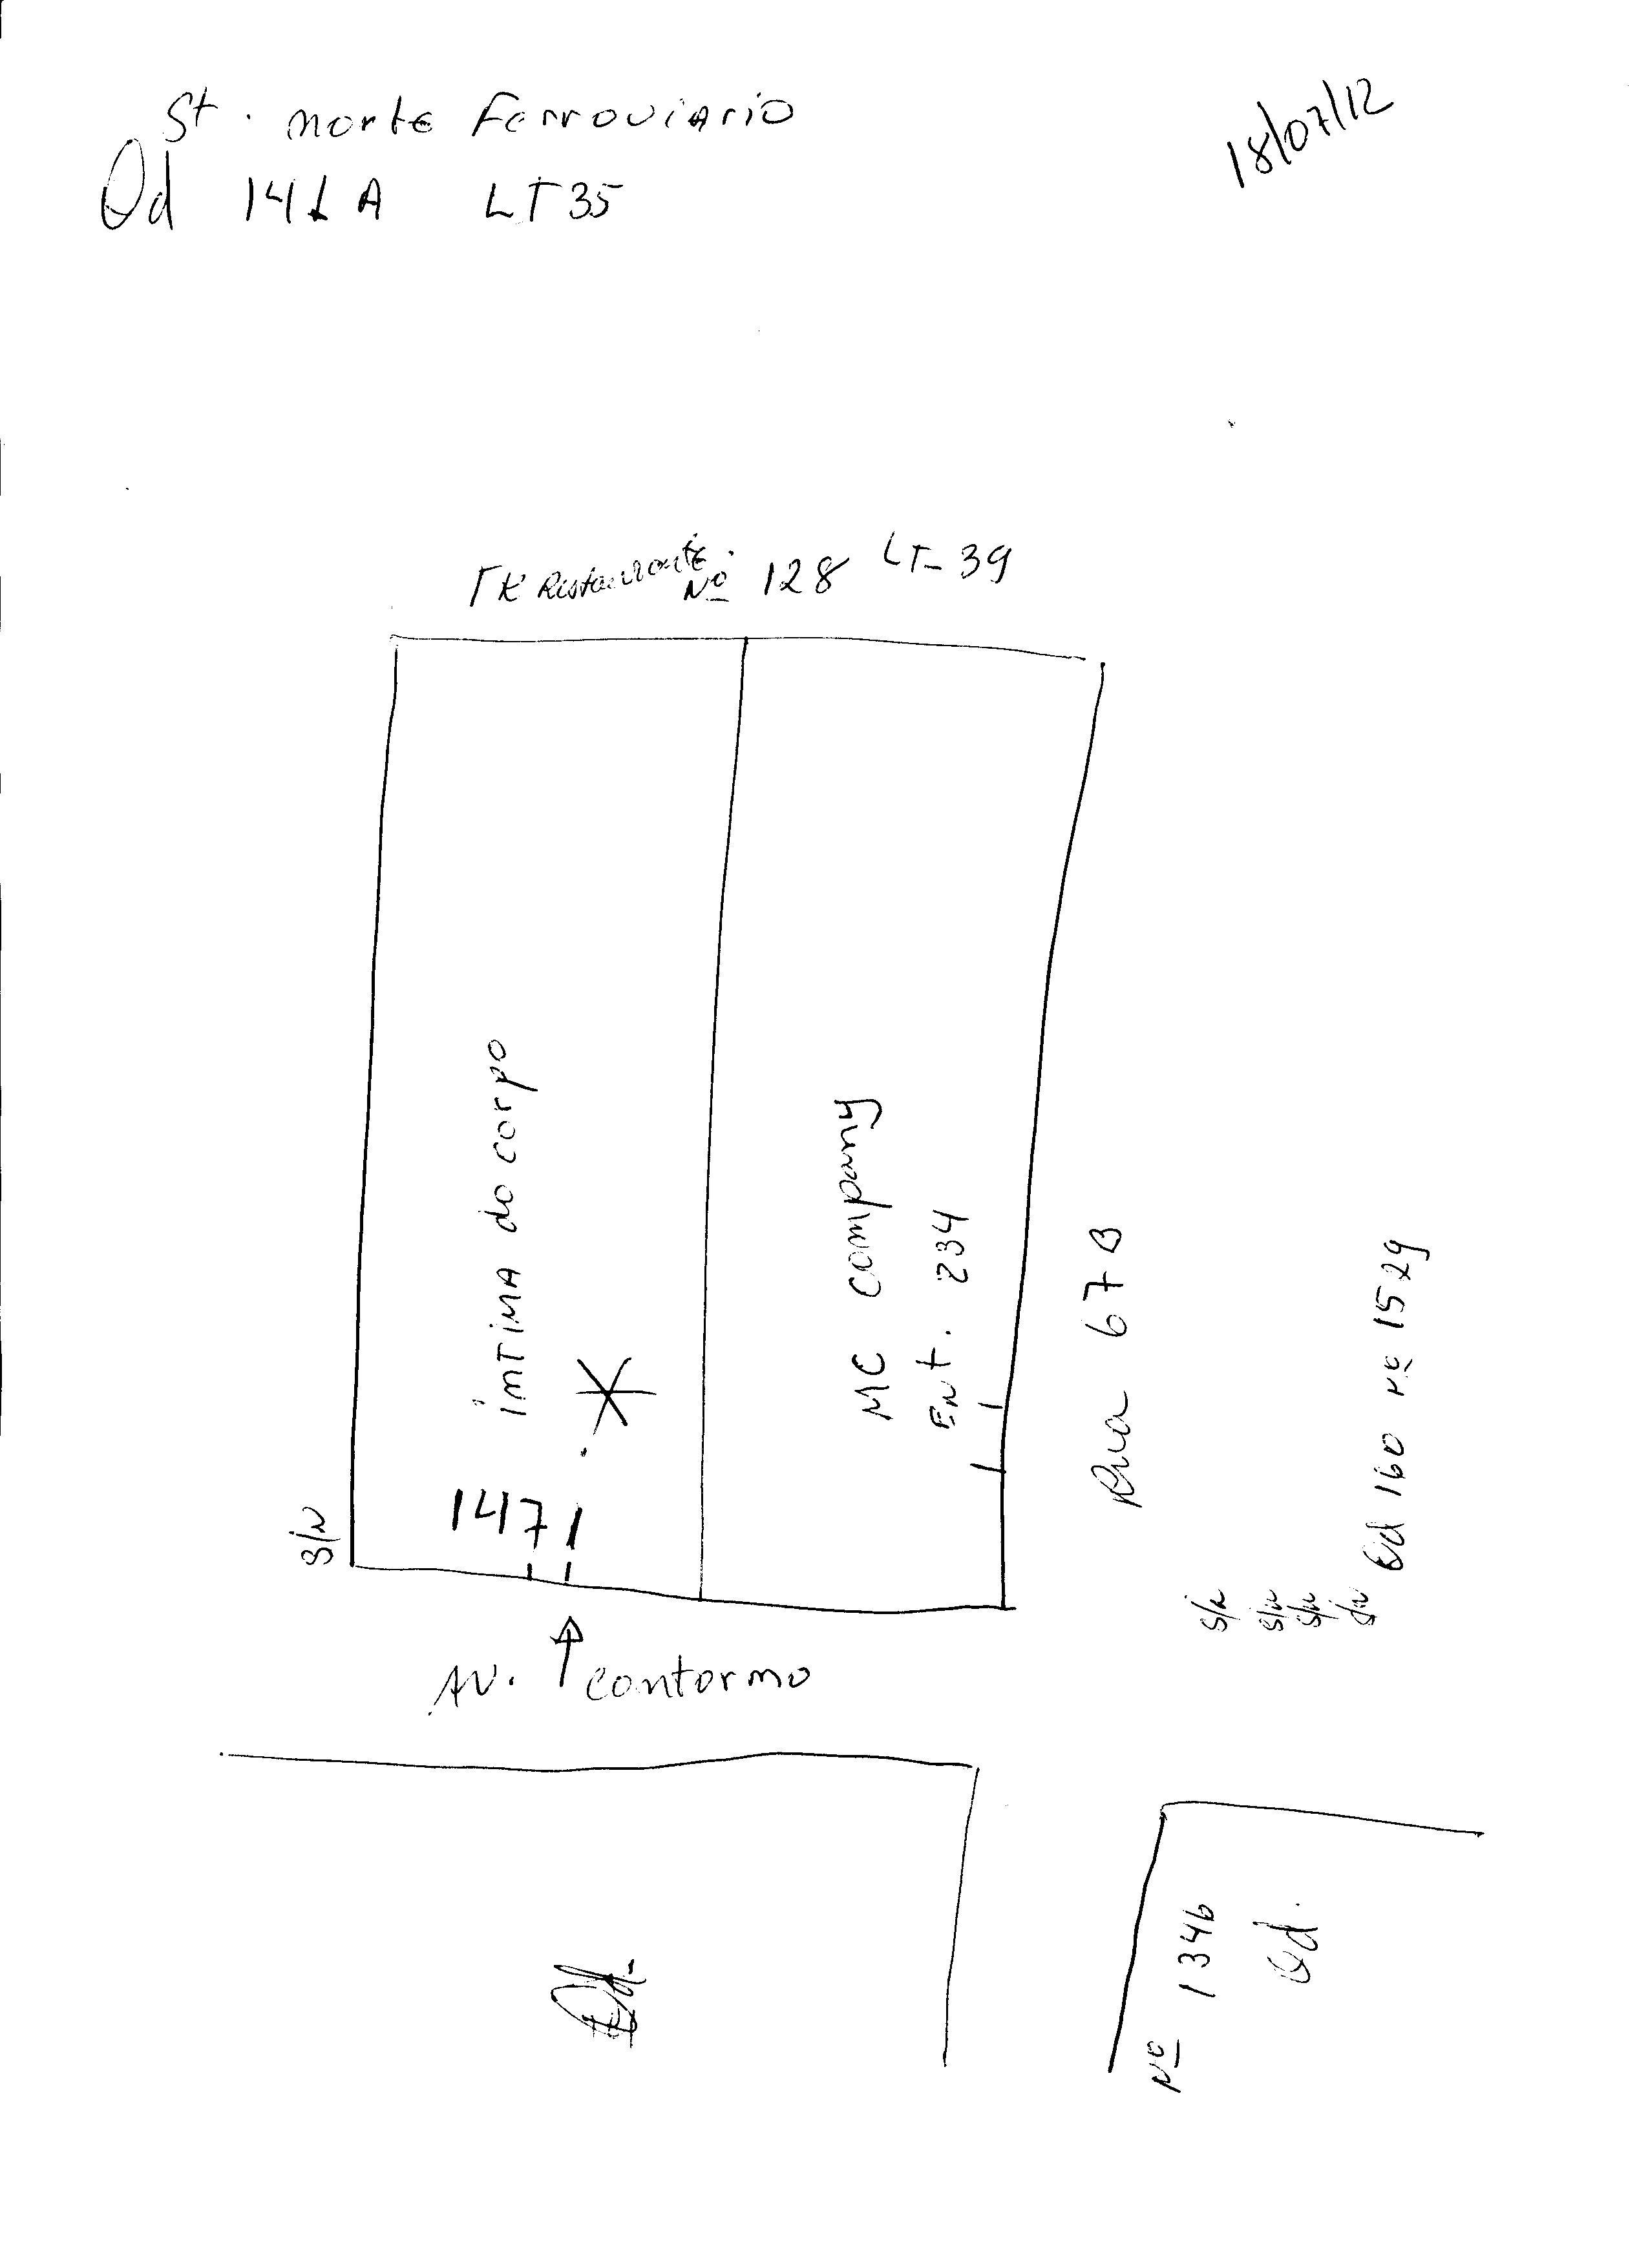 St. Norte Ferroviario
18/07/12
Qd 141 A LT 35
TK Restaurante. Nº 128 LT- 39
íntima do corpo
MC Company
Ent. 234
1471
S/N
Rua 67 B
Qd 160 Nº 1529
S/N
S/N
S/N
S/N
AV. Contorno
Qd.
Nº 1346
Qd.